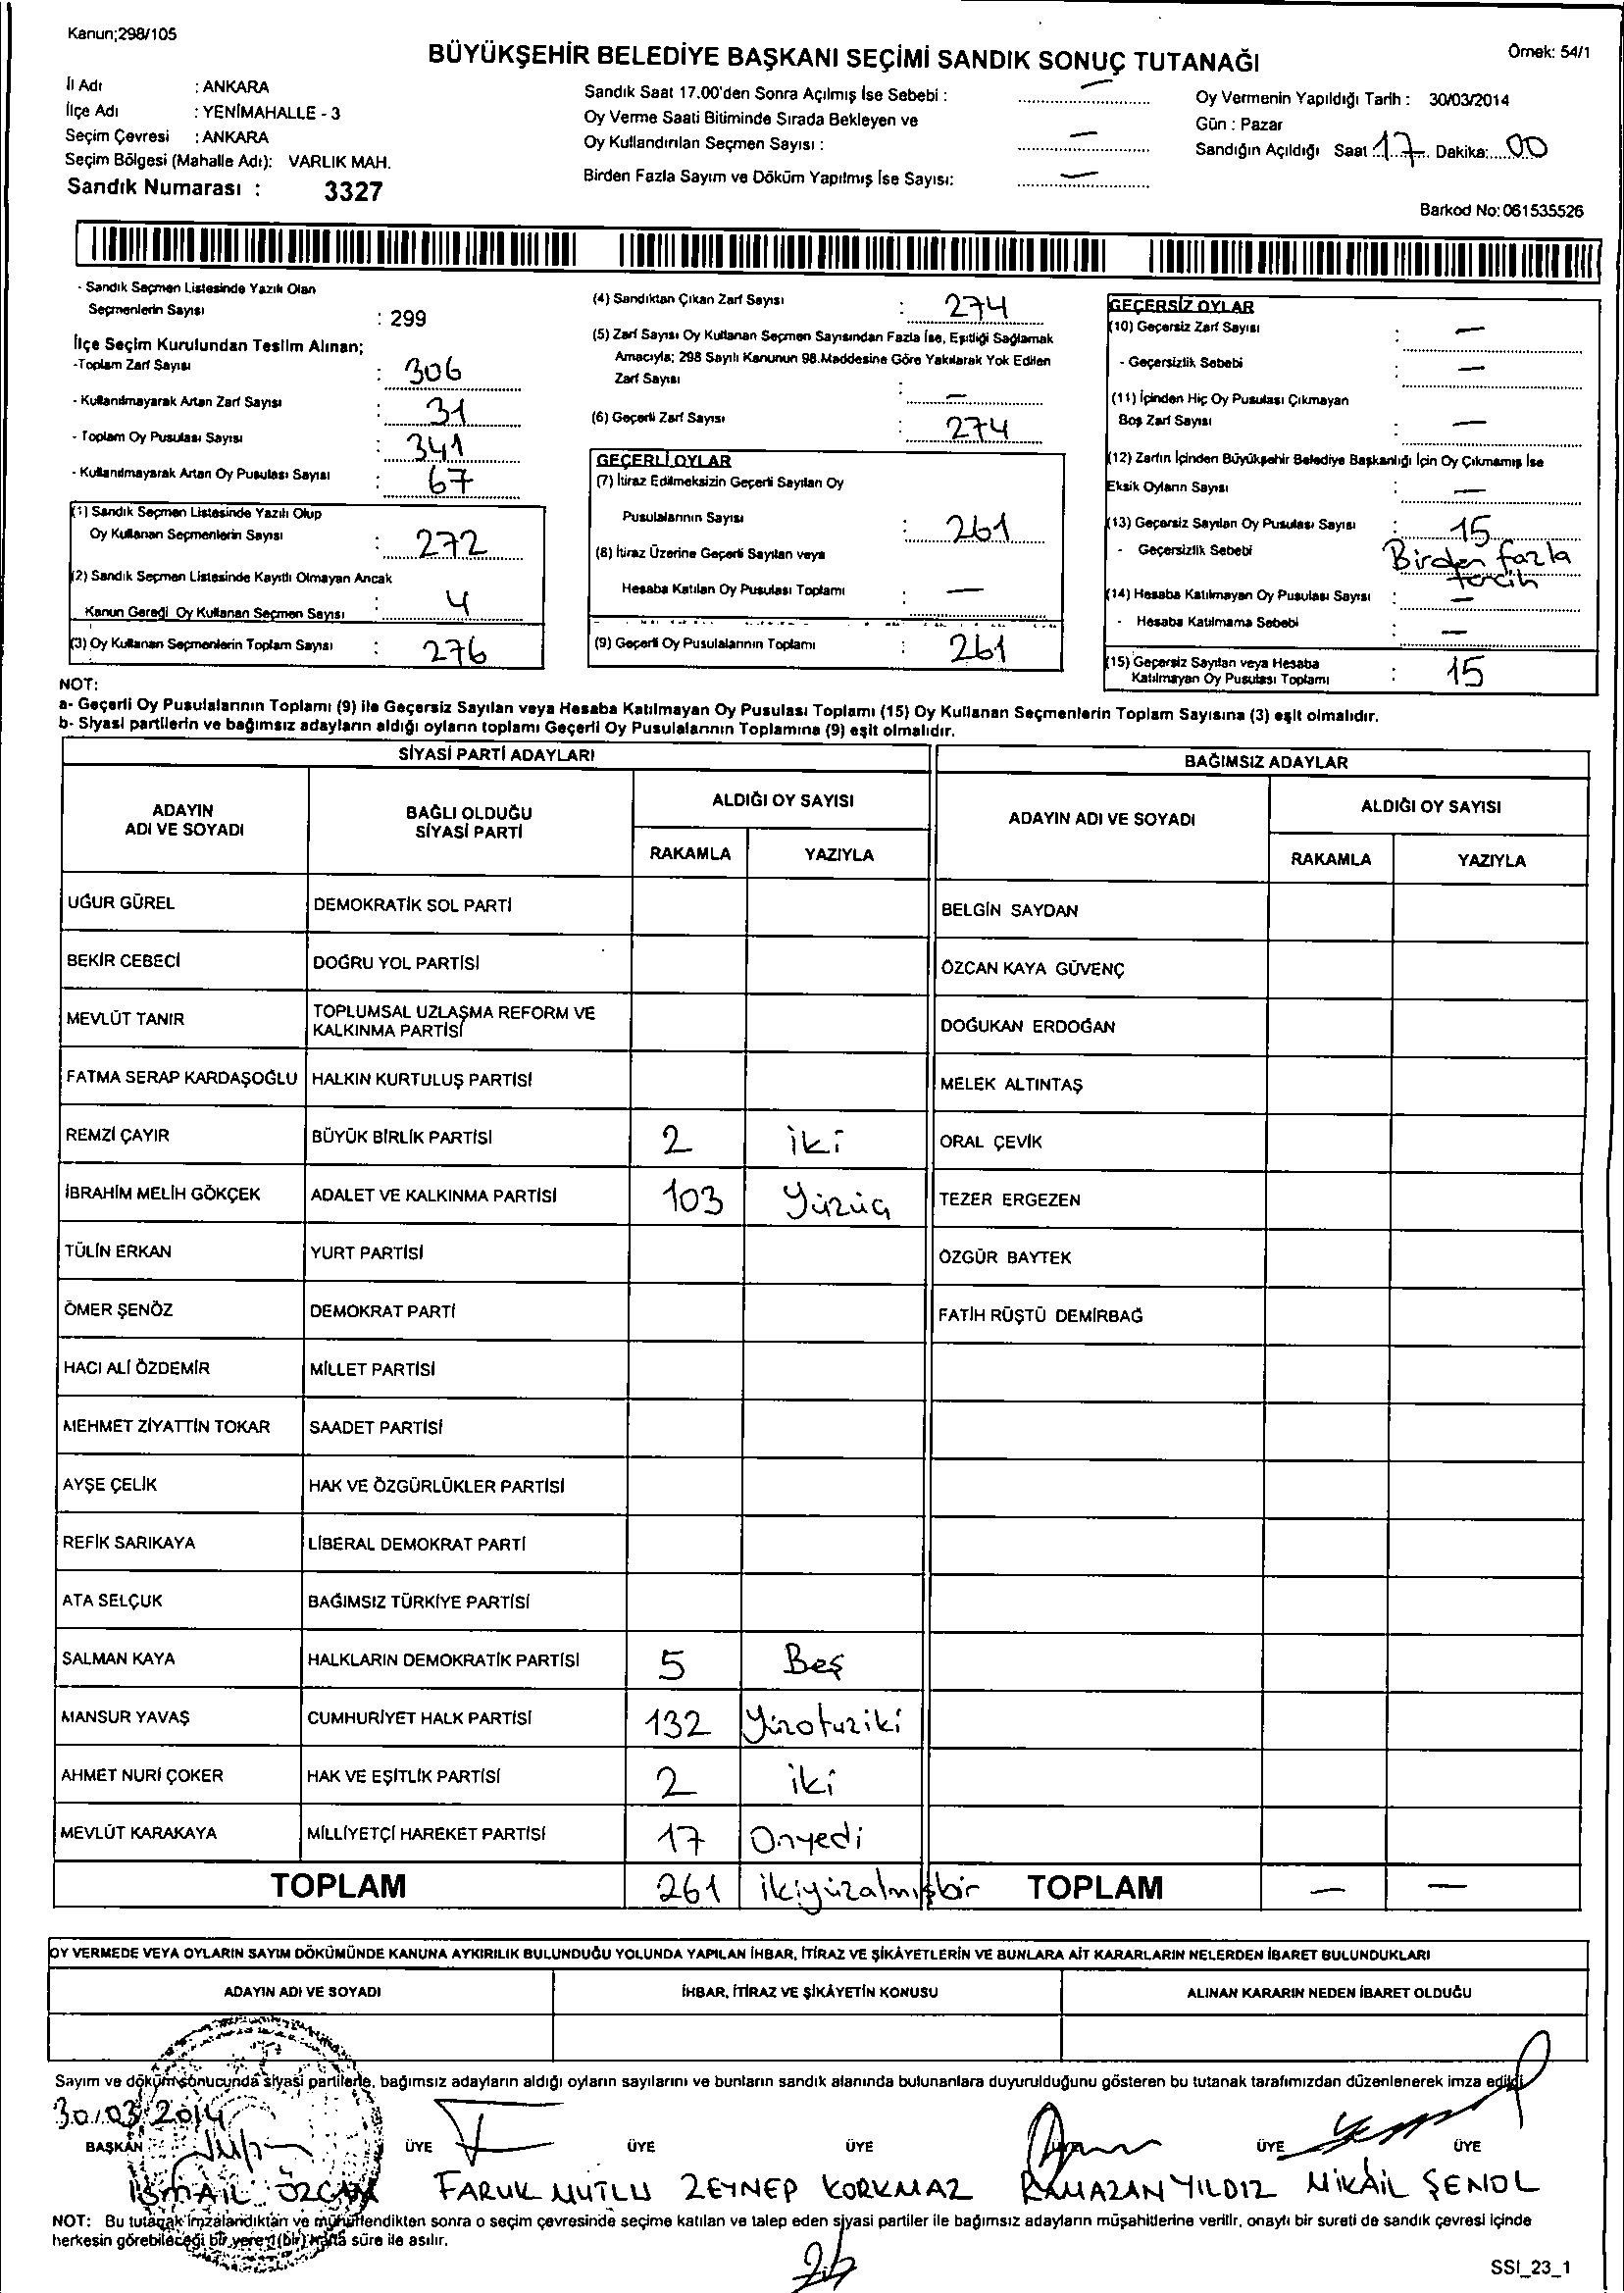 Kanun;298/105
BÜYÜKŞEHİR BELEDİYE BAŞKANI SEÇİMİ SANDIK SONUÇ TUTANAĞI
Örnek: 54/1
İl Adı : ANKARA
İlçe Adı : YENİMAHALLE - 3
Seçim Çevresi : ANKARA
Seçim Bölgesi (Mahalle Adı): VARLIK MAH.
Sandık Numarası : 3327
Sandık Saat 17.00'den Sonra Açılmış İse Sebebi : —
Oy Verme Saati Bitiminde Sırada Bekleyen ve
Oy Kullandırılan Seçmen Sayısı : —
Birden Fazla Sayım ve Döküm Yapılmış İse Sayısı: —
Oy Vermenin Yapıldığı Tarih : 30/03/2014
Gün : Pazar
Sandığın Açıldığı Saat 17 Dakika: 00
Barkod No: 061535526
- Sandık Seçmen Listesinde Yazılı Olan
Seçmenlerin Sayısı : 299
İlçe Seçim Kurulundan Teslim Alınan;
-Toplam Zarf Sayısı : 306
- Kullanılmayarak Artan Zarf Sayısı : 31
- Toplam Oy Pusulası Sayısı : 341
- Kullanılmayarak Artan Oy Pusulası Sayısı : 67
(1) Sandık Seçmen Listesinde Yazılı Olup
Oy Kullanan Seçmenlerin Sayısı : 272
(2) Sandık Seçmen Listesinde Kayıtlı Olmayan Ancak
Kanun Gereği Oy Kullanan Seçmen Sayısı : 4
(3) Oy Kullanan Seçmenlerin Toplam Sayısı : 276
(4) Sandıktan Çıkan Zarf Sayısı : 274
(5) Zarf Sayısı Oy Kullanan Seçmen Sayısından Fazla İse, Eşitliği Sağlamak
Amacıyla; 298 Sayılı Kanunun 98.Maddesine Göre Yakılarak Yok Edilen
Zarf Sayısı : —
(6) Geçerli Zarf Sayısı : 274
GEÇERLİ OYLAR
(7) İtiraz Edilmeksizin Geçerli Sayılan Oy
Pusulalarının Sayısı : 261
(8) İtiraz Üzerine Geçerli Sayılan veya
Hesaba Katılan Oy Pusulası Toplamı : —
(9) Geçerli Oy Pusulalarının Toplamı : 261
GEÇERSİZ OYLAR
(10) Geçersiz Zarf Sayısı : —
- Geçersizlik Sebebi : —
(11) İçinden Hiç Oy Pusulası Çıkmayan
Boş Zarf Sayısı : —
(12) Zarfın İçinden Büyükşehir Belediye Başkanlığı İçin Oy Çıkmamış İse
Eksik Oyların Sayısı : —
(13) Geçersiz Sayılan Oy Pusulası Sayısı : 15
- Geçersizlik Sebebi : Birden fazla
tercih
(14) Hesaba Katılmayan Oy Pusulası Sayısı : —
- Hesaba Katılmama Sebebi : —
(15) Geçersiz Sayılan veya Hesaba
Katılmayan Oy Pusulası Toplamı : 15
NOT:
a- Geçerli Oy Pusulalarının Toplamı (9) ile Geçersiz Sayılan veya Hesaba Katılmayan Oy Pusulası Toplamı (15) Oy Kullanan Seçmenlerin Toplam Sayısına (3) eşit olmalıdır.
b- Siyasi partilerin ve bağımsız adayların aldığı oyların toplamı Geçerli Oy Pusulalarının Toplamına (9) eşit olmalıdır.
SİYASİ PARTİ ADAYLARI
BAĞIMSIZ ADAYLAR
ADAYIN
ADI VE SOYADI
BAĞLI OLDUĞU
SİYASİ PARTİ
ALDIĞI OY SAYISI
RAKAMLA YAZIYLA
ADAYIN ADI VE SOYADI
ALDIĞI OY SAYISI
RAKAMLA YAZIYLA
UĞUR GÜREL DEMOKRATİK SOL PARTİ BELGİN SAYDAN
BEKİR CEBECİ DOĞRU YOL PARTİSİ ÖZCAN KAYA GÜVENÇ
MEVLÜT TANIR TOPLUMSAL UZLAŞMA REFORM VE
KALKINMA PARTİSİ DOĞUKAN ERDOĞAN
FATMA SERAP KARDAŞOĞLU HALKIN KURTULUŞ PARTİSİ MELEK ALTINTAŞ
REMZİ ÇAYIR BÜYÜK BİRLİK PARTİSİ 2 iki ORAL ÇEVİK
İBRAHİM MELİH GÖKÇEK ADALET VE KALKINMA PARTİSİ 103 Yüzüç TEZER ERGEZEN
TÜLİN ERKAN YURT PARTİSİ ÖZGÜR BAYTEK
ÖMER ŞENÖZ DEMOKRAT PARTİ FATİH RÜŞTÜ DEMİRBAĞ
HACI ALİ ÖZDEMİR MİLLET PARTİSİ
MEHMET ZİYATTİN TOKAR SAADET PARTİSİ
AYŞE ÇELİK HAK VE ÖZGÜRLÜKLER PARTİSİ
REFİK SARIKAYA LİBERAL DEMOKRAT PARTİ
ATA SELÇUK BAĞIMSIZ TÜRKİYE PARTİSİ
SALMAN KAYA HALKLARIN DEMOKRATİK PARTİSİ 5 Beş
MANSUR YAVAŞ CUMHURİYET HALK PARTİSİ 132 Yüzotuziki
AHMET NURİ ÇOKER HAK VE EŞİTLİK PARTİSİ 2 iki
MEVLÜT KARAKAYA MİLLİYETÇİ HAREKET PARTİSİ 17 Onyedi
TOPLAM 261 ikiyüzalmışbir TOPLAM — —
OY VERMEDE VEYA OYLARIN SAYIM DÖKÜMÜNDE KANUNA AYKIRILIK BULUNDUĞU YOLUNDA YAPILAN İHBAR, İTİRAZ VE ŞİKÂYETLERİN VE BUNLARA AİT KARARLARIN NELERDEN İBARET BULUNDUKLARI
ADAYIN ADI VE SOYADI İHBAR, İTİRAZ VE ŞİKÂYETİN KONUSU ALINAN KARARIN NEDEN İBARET OLDUĞU
Sayım ve döküm sonucunda siyasi partilerle, bağımsız adayların aldığı oyların sayılarını ve bunların sandık alanında bulunanlara duyurulduğunu gösteren bu tutanak tarafımızdan düzenlenerek imza edildi.
30/03/2014
BAŞKAN ÜYE ÜYE ÜYE ÜYE ÜYE ÜYE
İSMAİL ÖZCAN FARUK MUTLU ZEYNEP KORKMAZ RAMAZAN YILDIZ MİKAİL ŞENOL
NOT: Bu tutanak imzalandıktan ve mühürlendikten sonra o seçim çevresinde seçime katılan ve talep eden siyasi partiler ile bağımsız adayların müşahitlerine verilir, onaylı bir sureti de sandık çevresi içinde
herkesin görebileceği bir yere 1(bir) hafta süre ile asılır.
SSI_23_1